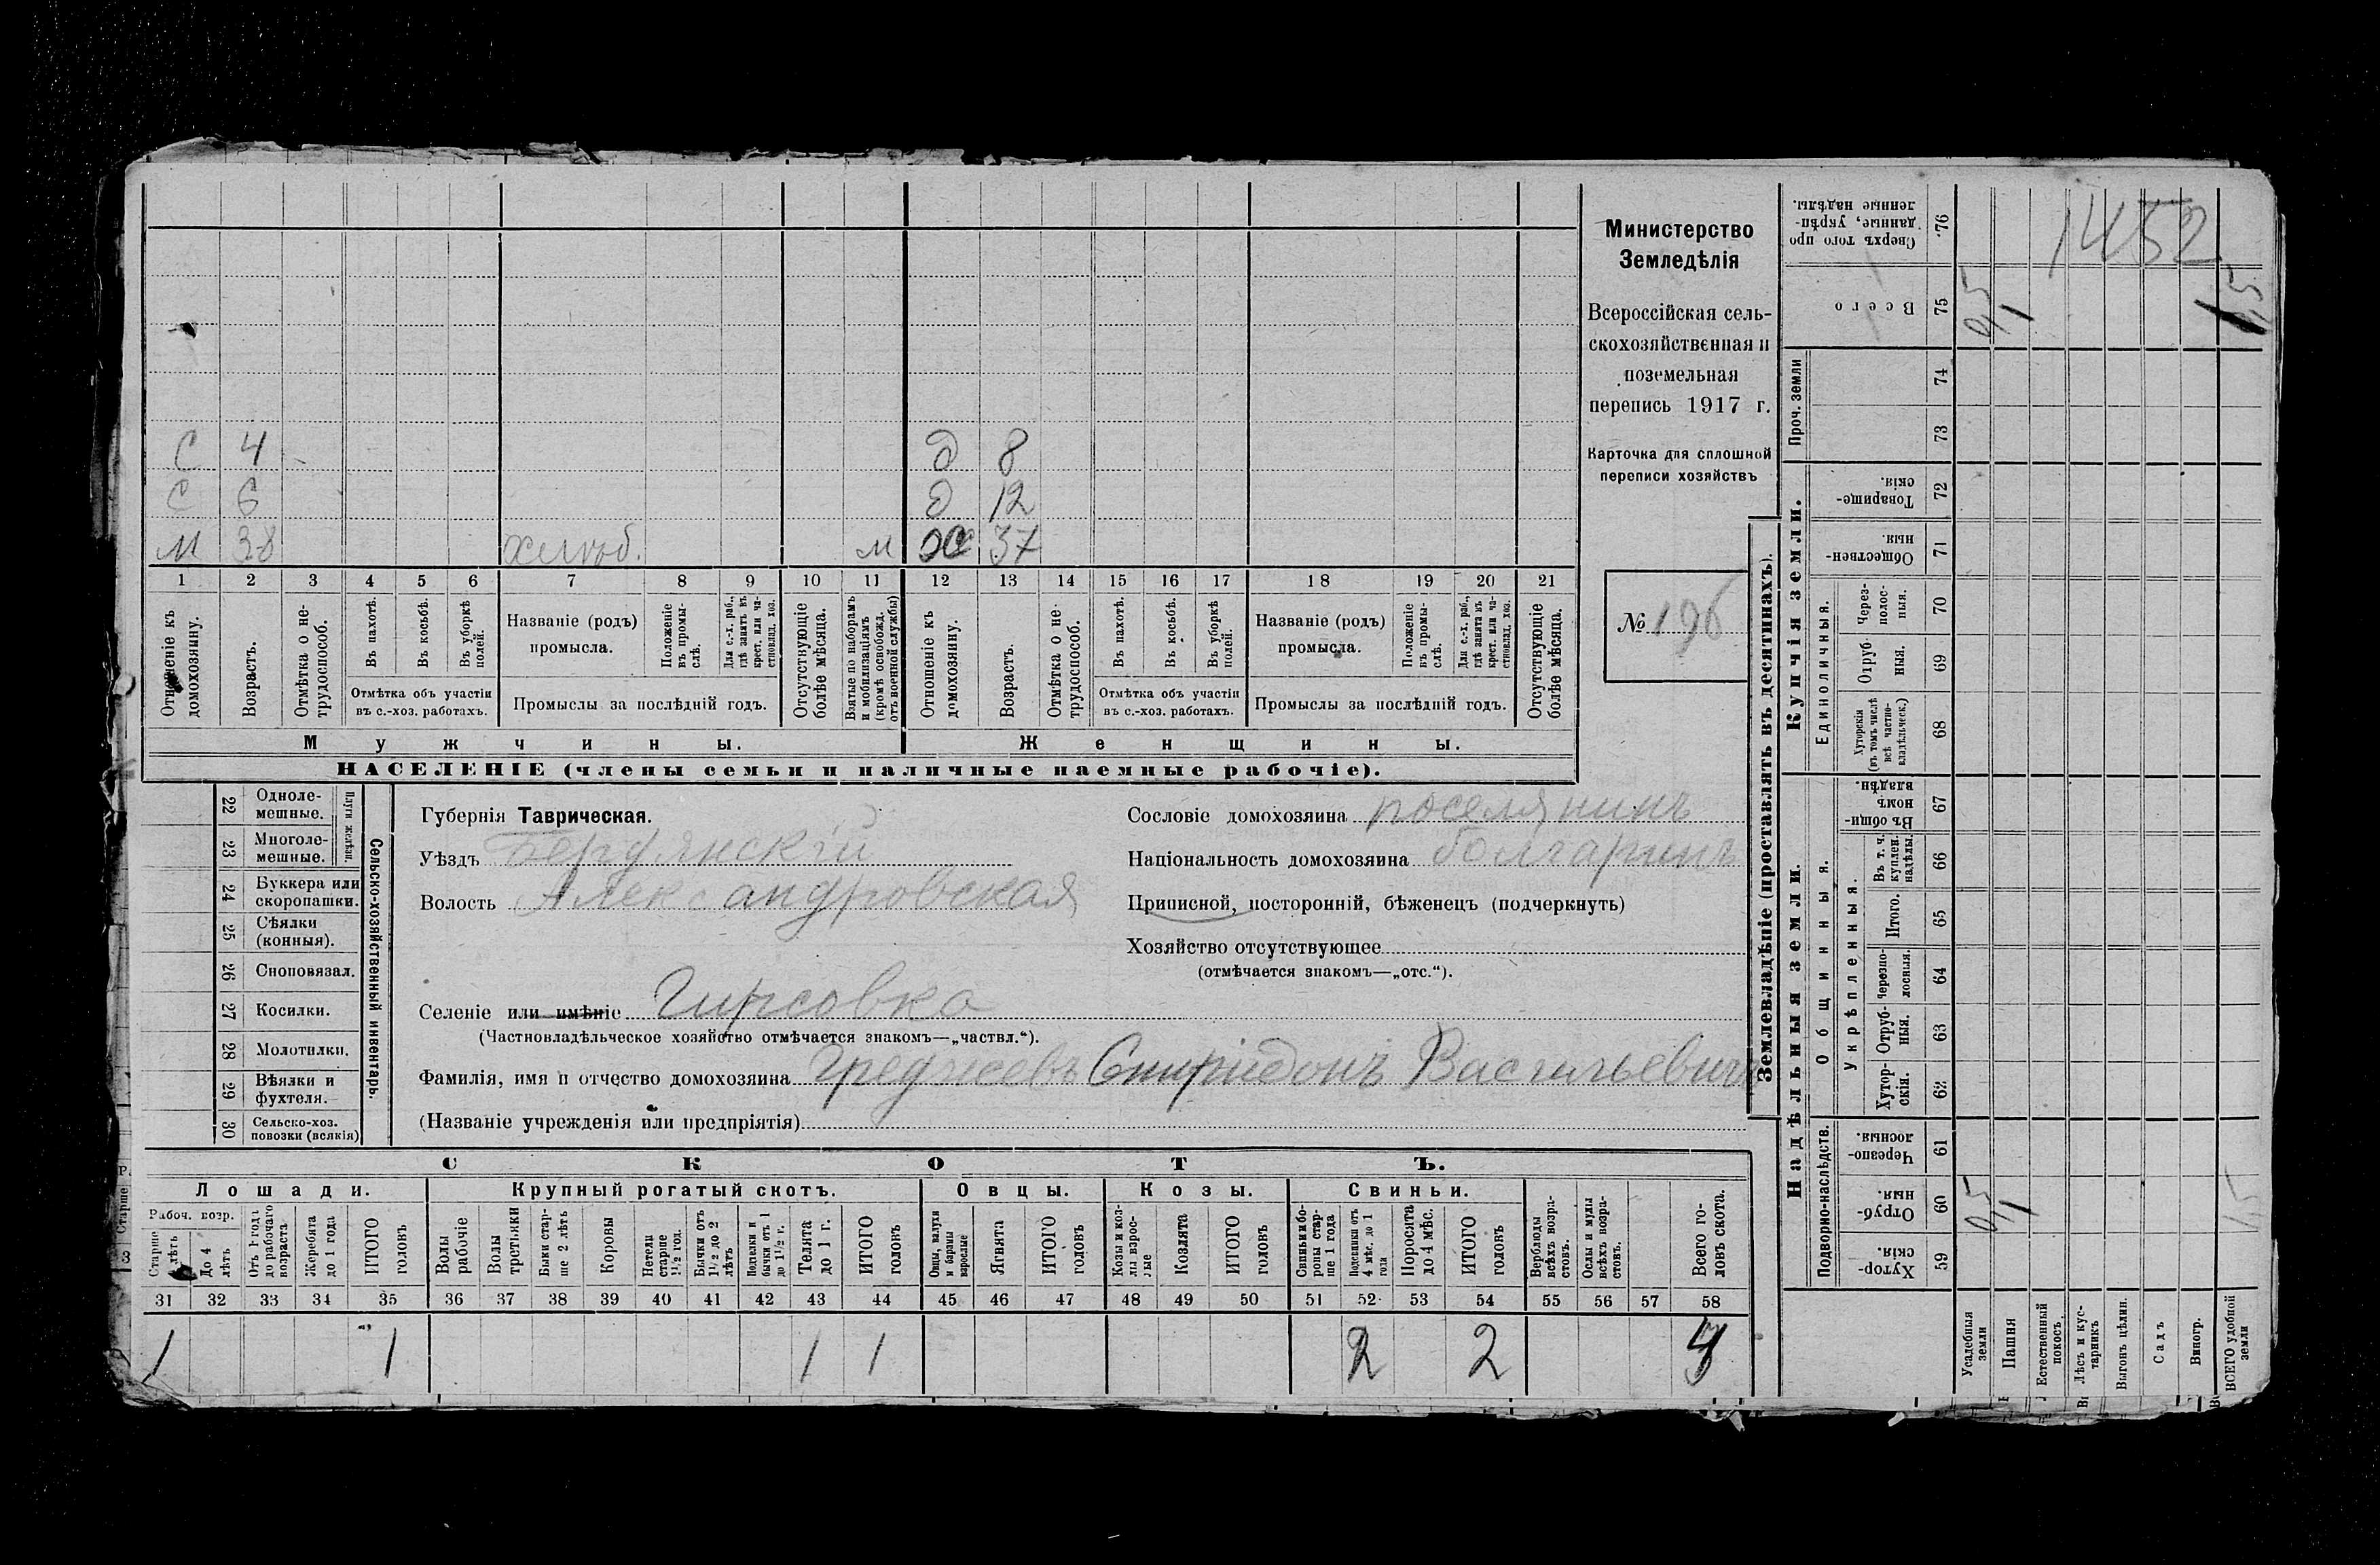 С 4 д 8
С 6 д 12
М 38 М ж 37
1 2 3 4 5 6 7 8 9 10 11 12 13 14 15 16 17 18 19 20 21
Отношеніе къ домохозяину.
Возрастъ.
Отмѣтка о нетрудоспособ.
Въ пахотѣ.
Въ косьбѣ.
Въ уборкѣ полей.
Отмѣтка объ участіи въ с.-хоз. работахъ.
Названіе (родъ) промысла.
Положеніе въ промыслѣ.
Для с.-х. раб., гдѣ занятъ въ крест. или частновлад. хоз.
Промыслы за послѣдній годъ.
Отсутствующіе болѣе мѣсяца.
Взятые по наборамъ и мобилизаціямъ (кромѣ освобожд. отъ военной службы)
Отношеніе къ домохозяину.
Возрастъ.
Отмѣтка о нетрудоспособ.
Въ пахотѣ.
Въ косьбѣ.
Въ уборкѣ полей.
Отмѣтка объ участіи въ с.-хоз. работахъ.
Названіе (родъ) промысла.
Положеніе въ промыслѣ.
Для с.-х. раб., гдѣ занята въ крест. или частновлад. хоз.
Промыслы за послѣдній годъ.
Отсутствующіе болѣе мѣсяца.
Мужчины. Женщины.
НАСЕЛЕНІЕ (члены семьи и наличные наемные рабочіе).
Министерство
Земледѣлія
Всероссійская сель-
скохозяйственная и
поземельная
перепись 1917 г.
Карточка для сплошной
переписи хозяйствъ
№ 196
22 Одноле-
мешные.
23 Многоле-
мешные.
Плуги желѣзн.
24 Буккера или
скоропашки.
25 Сѣялки
(конныя).
26 Сноповязал.
27 Косилки.
28 Молотилки.
29 Вѣялки и
фухтеля.
30 Сельско-хоз.
повозки (всякія)
Сельско-хозяйственный инвентарь.
Губернія Таврическая.
Уѣздъ Бердянскій
Волость Александровская
Селеніе или имѣніе Гирсовка
(Частновладѣльческое хозяйство отмѣчается знакомъ—„частвл.“).
Фамилія, имя и отчество домохозяина Греджевъ Спиридонъ Васильевичъ
(Названіе учрежденія или предпріятія)
Сословіе домохозяина поселянинъ
Національность домохозяина болгаринъ
Приписной, посторонній, бѣженецъ (подчеркнуть)
Хозяйство отсутствующее
(отмѣчается знакомъ—„отс.“).
СКОТЪ.
Лошади. Крупный рогатый скотъ. Овцы. Козы. Свиньи.
Рабоч. возр.
Старше 4 лѣтъ
До 4 лѣтъ
Отъ 1 года до рабочаго возраста
Жеребята до 1 года
ИТОГО головъ
Волы рабочіе
Волы третьяки
Быки старше 2 лѣтъ
Коровы
Нетели старше 1½ год.
Бычки отъ 1½ до 2 лѣтъ
Подтелки и бычки отъ 1 до 1½ г.
Телята до 1 г.
ИТОГО головъ
Овцы, валухи и бараны взрослые
Ягнята
ИТОГО головъ
Козы и козлы взрослые
Козлята
ИТОГО головъ
Свиньи и боровы старше 1 года
Подсвинки отъ 4 мѣс. до 1 года
Поросята до 4 мѣс.
ИТОГО головъ
Верблюды всѣхъ возрастовъ.
Ослы и мулы всѣхъ возрастовъ.
Всего головъ скота.
31 32 33 34 35 36 37 38 39 40 41 42 43 44 45 46 47 48 49 50 51 52 53 54 55 56 57 58
1 1 1 1 2 2 4
Землевладѣніе (проставлять въ десятинахъ).
Надѣльныя земли. Купчія земли. Проч. земли
Подворно-наслѣдств.
Общинныя.
Укрѣпленныя.
Единоличныя.
Хуторскія. 59
Отрубныя. 60
Черезполосныя. 61
Хуторскія. 62
Отрубныя. 63
Черезполосныя. 64
Итого. 65
Въ т. ч. куплен. надѣлы. 66
Въ общинномъ владѣн. 67
Хуторскія (въ томъ числѣ всѣ частновладѣльческ.) 68
Отрубныя. 69
Черезполосныя. 70
Общественныя. 71
Товарищескія. 72
73
74
Всего 75
Сверхъ того проданные, укрѣпленные надѣлы. 76
Усадебныя земли
Пашня
Естественный покосъ.
Лѣсъ и кустарникъ
Выгонъ цѣлин.
Садъ
Виногр.
ВСЕГО удобной земли
0,5 1 1,5
0,5 1 1,5
1452